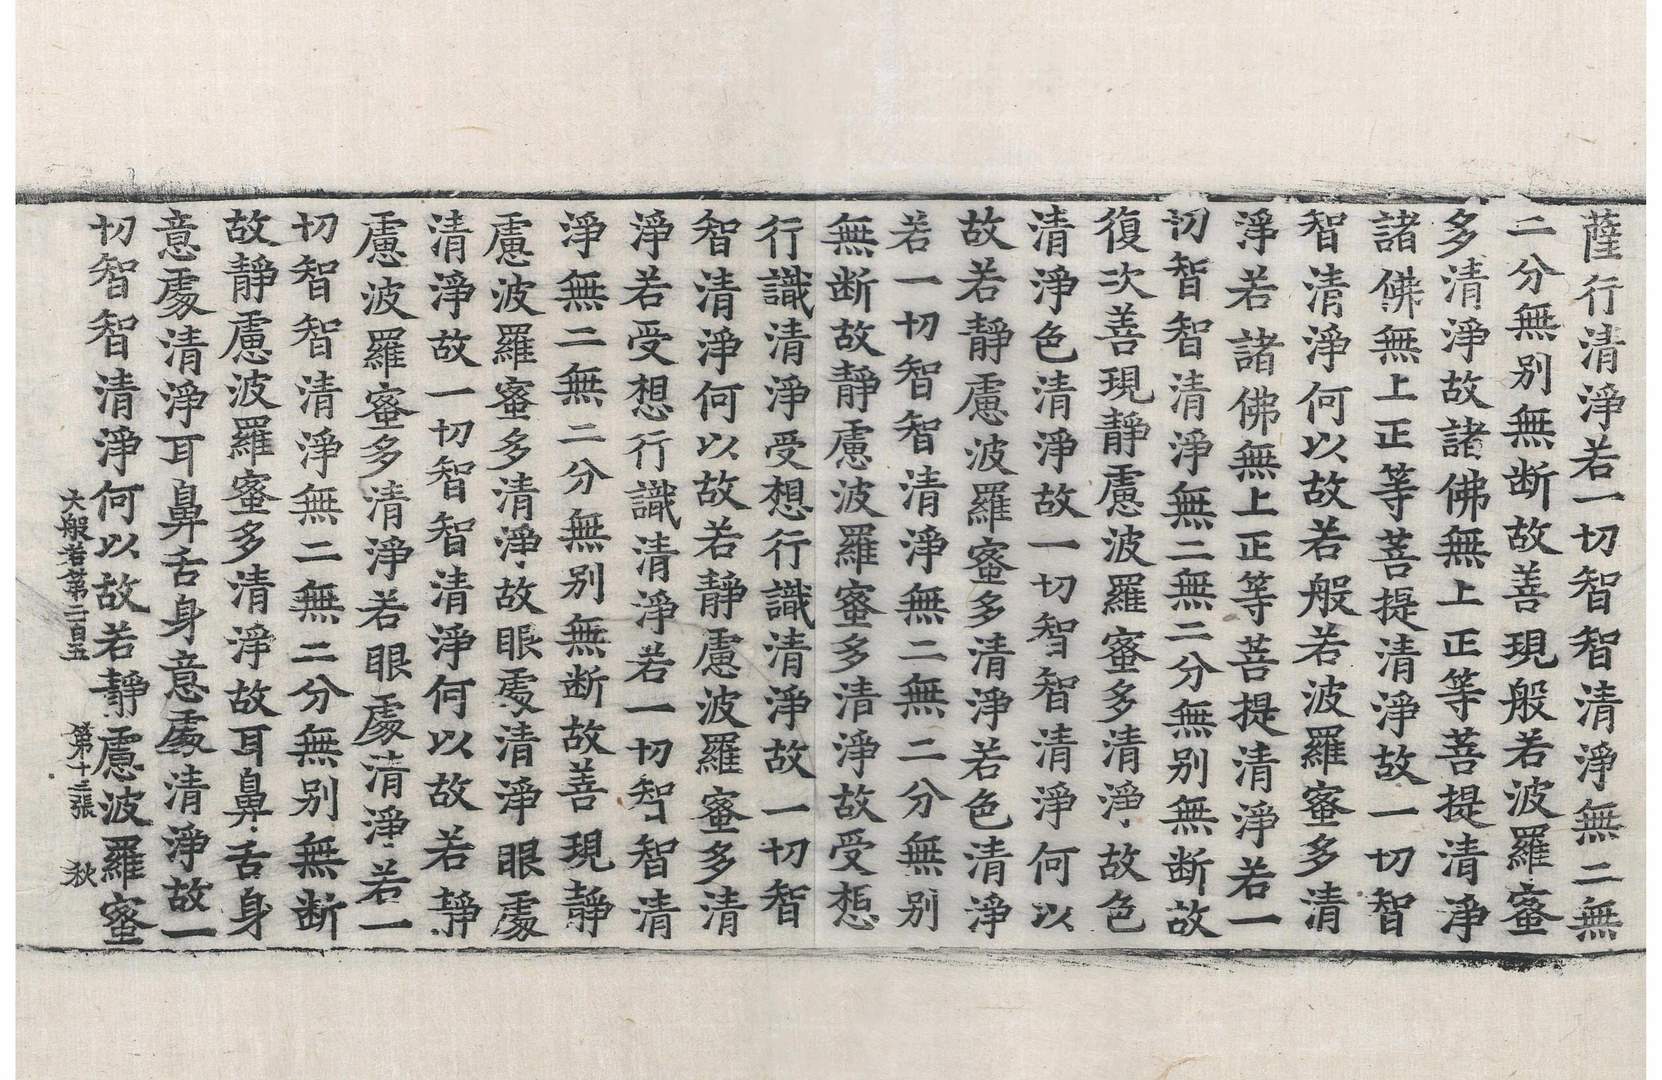 薩行清淨若一切智智清淨無二無
二分無別無断故善現般若波羅蜜
多清淨故諸佛無上正等菩提清淨
諸佛無上正等菩提清淨故一切智
智清淨何以故若般若波羅蜜多清
淨若諸佛無上正等菩提清淨若一
切智智清淨無二無二分無別無断故
復次善現靜慮波羅蜜多清淨故色
清淨色清淨故一切智智清淨何以
故若靜慮波羅蜜多清淨若色清淨
若一切智智清淨無二無二分無別
無断故靜慮波羅蜜多清淨故受想
行識清淨受想行識清淨故一切智
智清淨何以故若靜慮波羅蜜多清
淨若受想行識清淨若一切智智清
淨無二無二分無別無断故善現靜
慮波羅蜜多清淨故眼處清淨眼處
清淨故一切智智清淨何以故若靜
慮波羅蜜多清淨若眼處清淨若一
切智智清淨無二無二分無別無断
故靜慮波羅蜜多清淨故耳鼻舌身
意處清淨耳鼻舌身意處清淨故一
切智智清淨何以故若靜慮波羅蜜
大般若第二百五 第十三張 秋